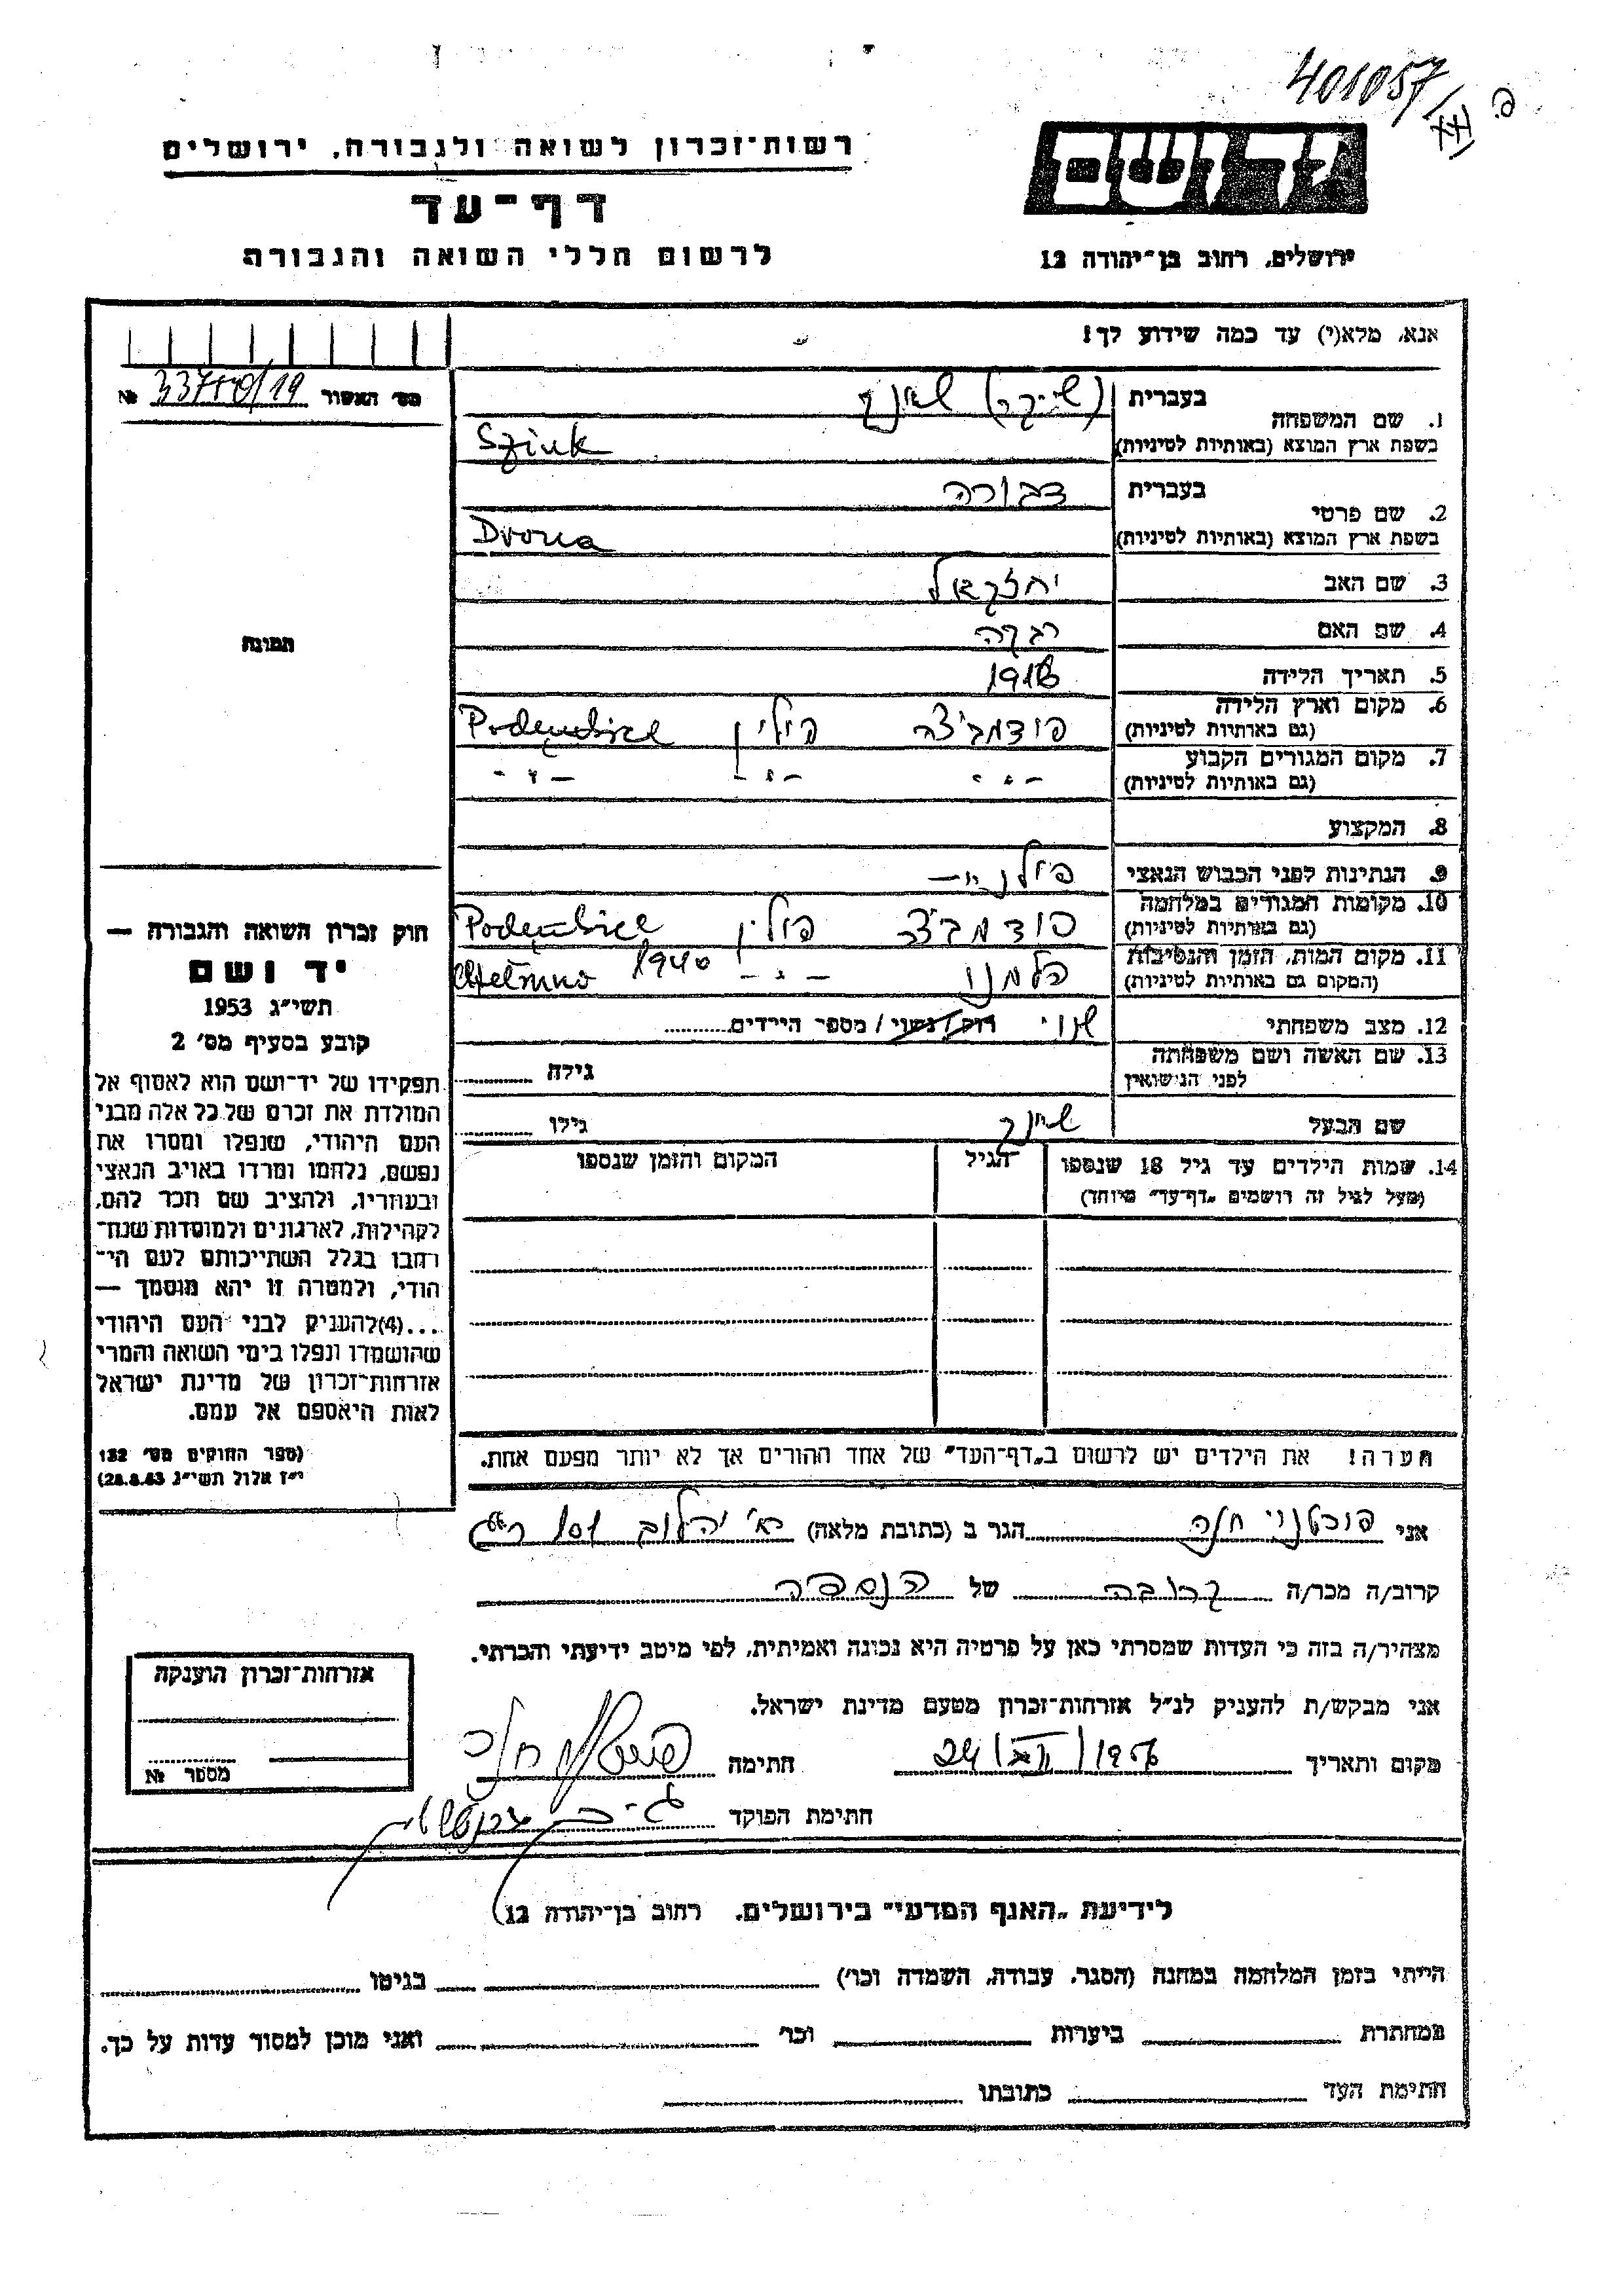 401057
רשות-זכרון לשואה ולגבורה, ירושלים
דף-עד
לרשום חללי השואה והגבורה
ידושם
ירושלים, רחוב בן-יהודה 12
אנא, מלא(י) עד כמה שידוע לך!
מס' האשור №
1. שם המשפחה
בעברית
בשפת ארץ המוצא (באותיות לטיניות)
Sziuk
2. שם פרטי
בעברית דבורה
בשפת ארץ המוצא (באותיות לטיניות)
Dvora
3. שם האב יחזקאל
4. שם האם רבקה
5. תאריך הלידה
6. מקום וארץ הלידה
(גם באותיות לטיניות) פודמביצה פולין
7. מקום המגורים הקבוע
(גם באותיות לטיניות) -"- -"- -"-
8. המקצוע
9. הנתינות לפני הכבוש הנאצי
10. מקומות המגורים במלחמה
(גם באותיות לטיניות) פודמביצה פולין
11. מקום המות, הזמן והנסיבות
(המקום גם באותיות לטיניות) -"- 1940 Chełmno
12. מצב משפחתי רוק/נשוי/מספר הילדים
13. שם האשה ושם משפחתה
לפני הנישואין
גילה
שם הבעל
גילו
14. שמות הילדים עד גיל 18 שנספו
(מעל לגיל זה רושמים "דף-עד" מיוחד)
הגיל
המקום והזמן שנספו
הערה! את הילדים יש לרשום ב"דף-העד" של אחד ההורים אך לא יותר מפעם אחת.
תמונה
חוק זכרון השואה והגבורה —
יד ושם
תשי"ג 1953
קובע בסעיף מס' 2
תפקידו של יד-ושם הוא לאסוף אל
המולדת את זכרם של כל אלה מבני
העם היהודי, שנפלו ומסרו את
נפשם, נלחמו ומרדו באויב הנאצי
ובעוזריו, ולהציב שם וזכר להם,
לקהילות, לארגונים ולמוסדות שנח-
רבו בגלל השתייכותם לעם הי-
הודי, ולמטרה זו יהא מוסמך —
...(4) להעניק לבני העם היהודי
שהושמדו ונפלו בימי השואה והמרי
אזרחות-זכרון של מדינת ישראל
לאות היאספם אל עמם.
(ספר החוקים מס' 132
י"ז אלול תשי"ג 28.8.53)
אני חנה הגר ב (כתובת מלאה) 101
קרוב/ה מכר/ה קרובה של הנספה
מצהיר/ה בזה כי העדות שמסרתי כאן על פרטיה היא נכונה ואמיתית, לפי מיטב ידיעתי והכרתי.
אני מבקש/ת להעניק לנ"ל אזרחות-זכרון מטעם מדינת ישראל.
מקום ותאריך חתימה
חתימת הפוקד
אזרחות-זכרון הוענקה
מספר №
לידיעת "האגף המדעי" בירושלים. רחוב בן-יהודה 12
הייתי בזמן המלחמה במחנה (הסגר, עבודה, השמדה וכו') בגיטו
במחתרת ביערות וכו' ואני מוכן למסור עדות על כך.
חתימת העד כתובתו